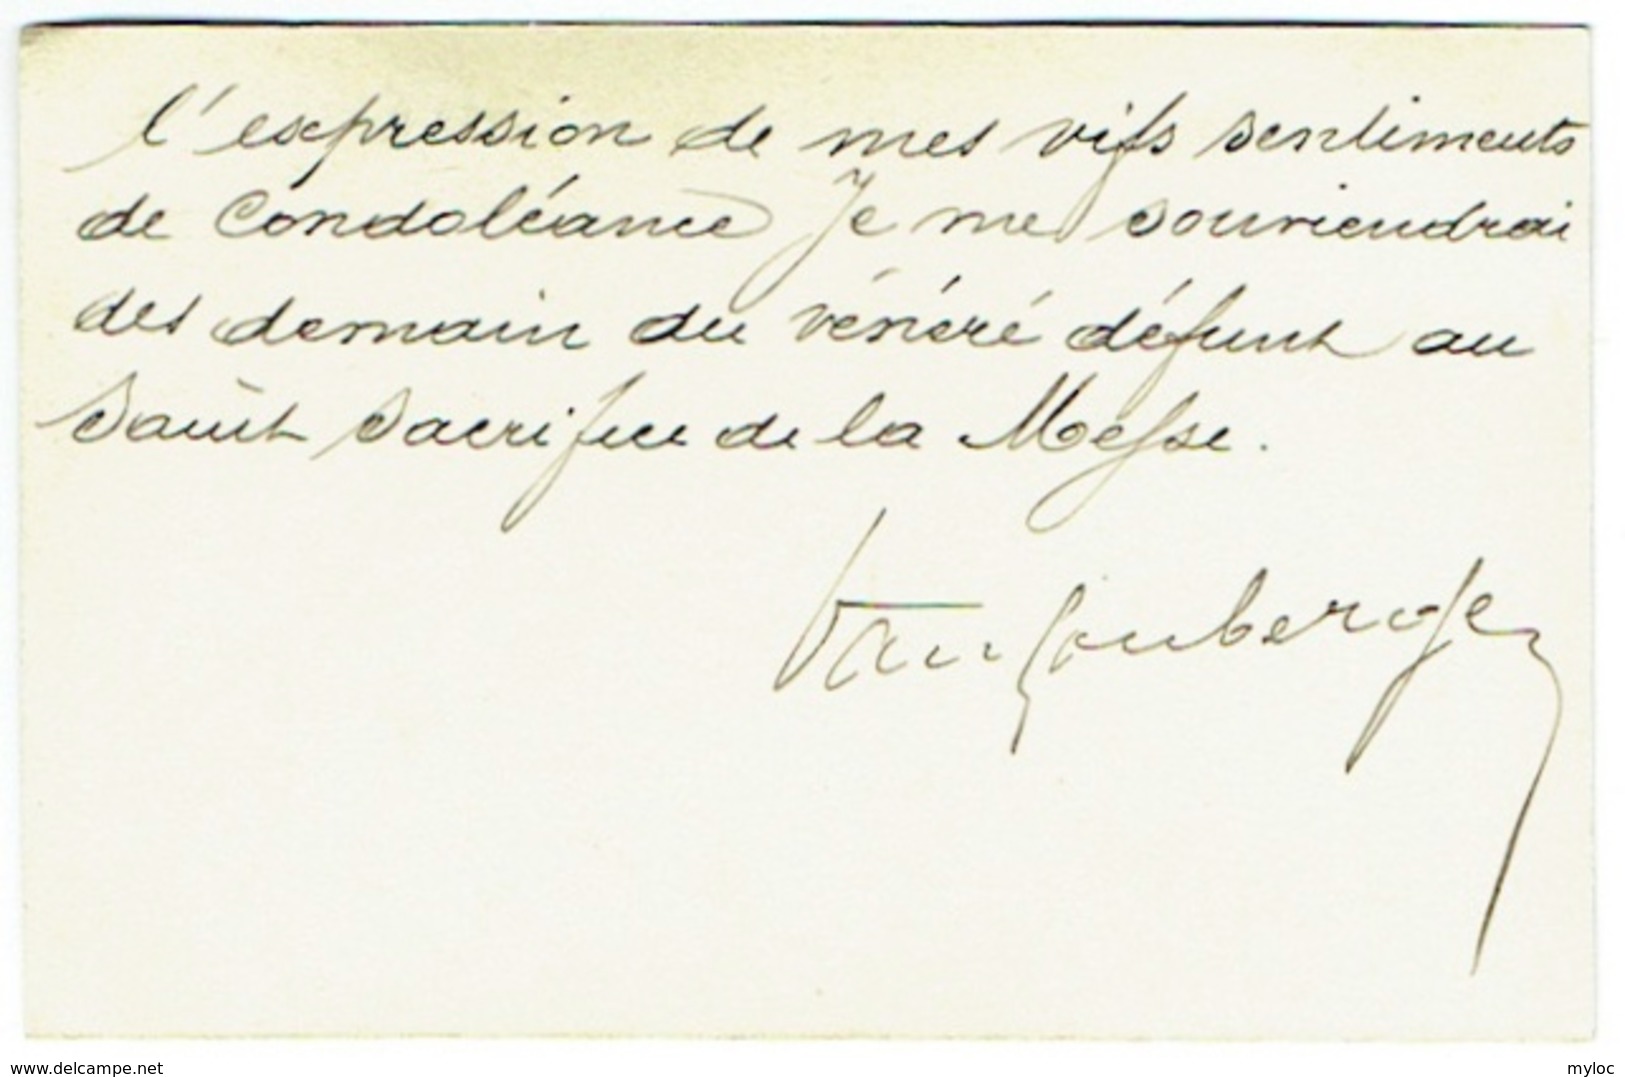 l'expression de mes vifs sentiments
de Condoléance Je me souviendrai
des demain du vénéré défunt au
Saint Sacrifice de la Messe.
www.delcampe.net
myloc